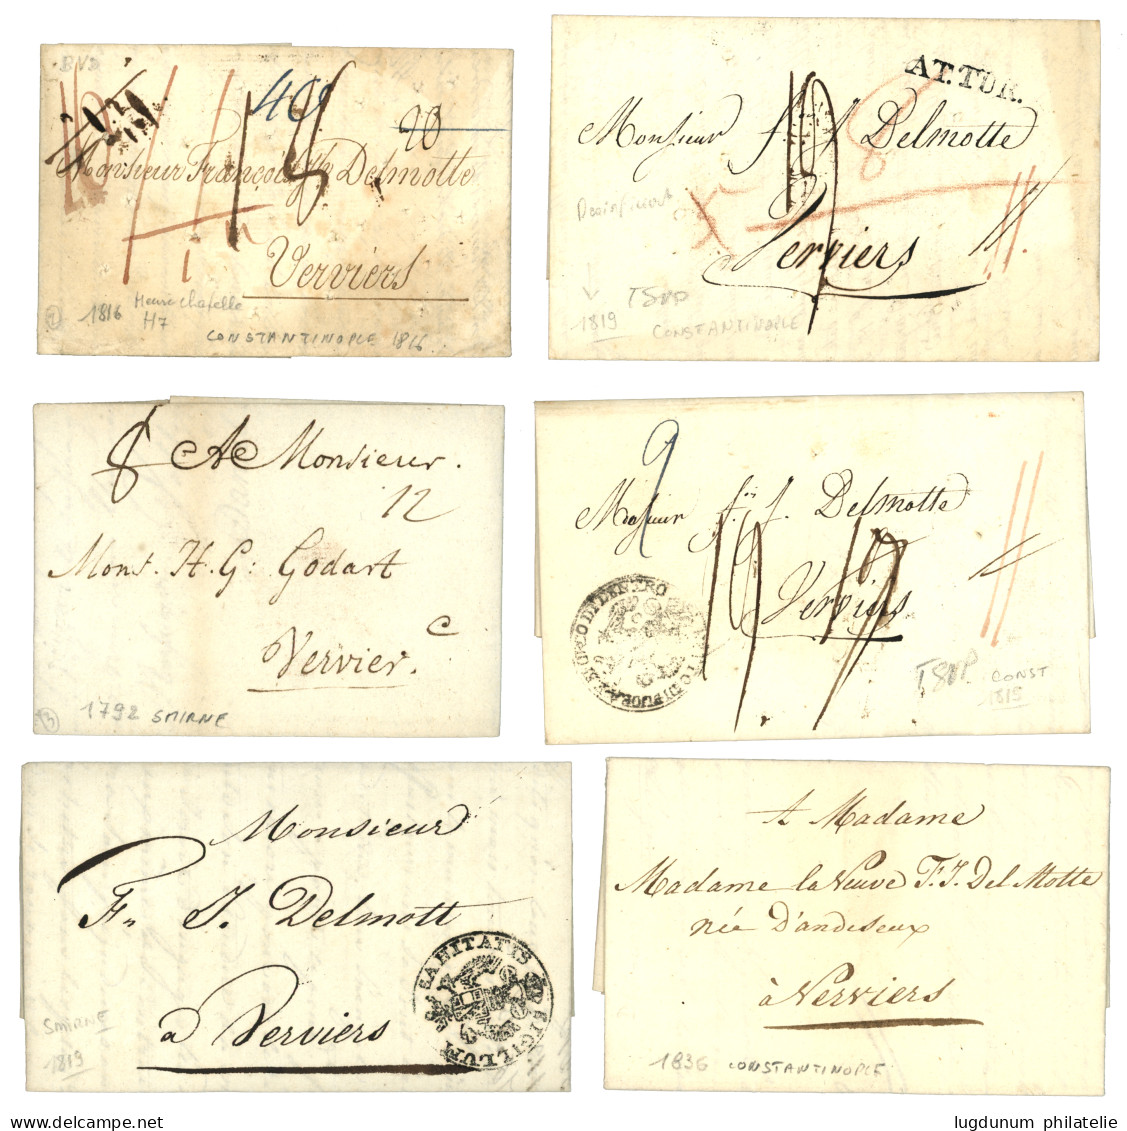 40
20
Monsieur François Jh Delmotte
Verviers
1816 Henri Chapelle
H7
CONSTANTINOPLE 1816
AT.TUR.
8
Monsieur f. J. Delmotte
Verviers
1819 TSVP
CONSTANTINOPLE
8 A Monsieur.
12
Mons. H. G: Godart
c
Vervier.
3
1792 SMIRNE
9
Monsieur f: J. Delmotte
Verviers
NETTO DI FUORA E SPORCO DI DENTRO
TSVP CONST
1819
Monsieur
Fn J. Delmott
a Verviers
SIGILLUM SANITATIS
SMIRNE
1819
A Madame
Madame la Veuve F. J. Del Motte
née D'andeseux
à Verviers
1836 CONSTANTINOPLE
lugdunum philatelie